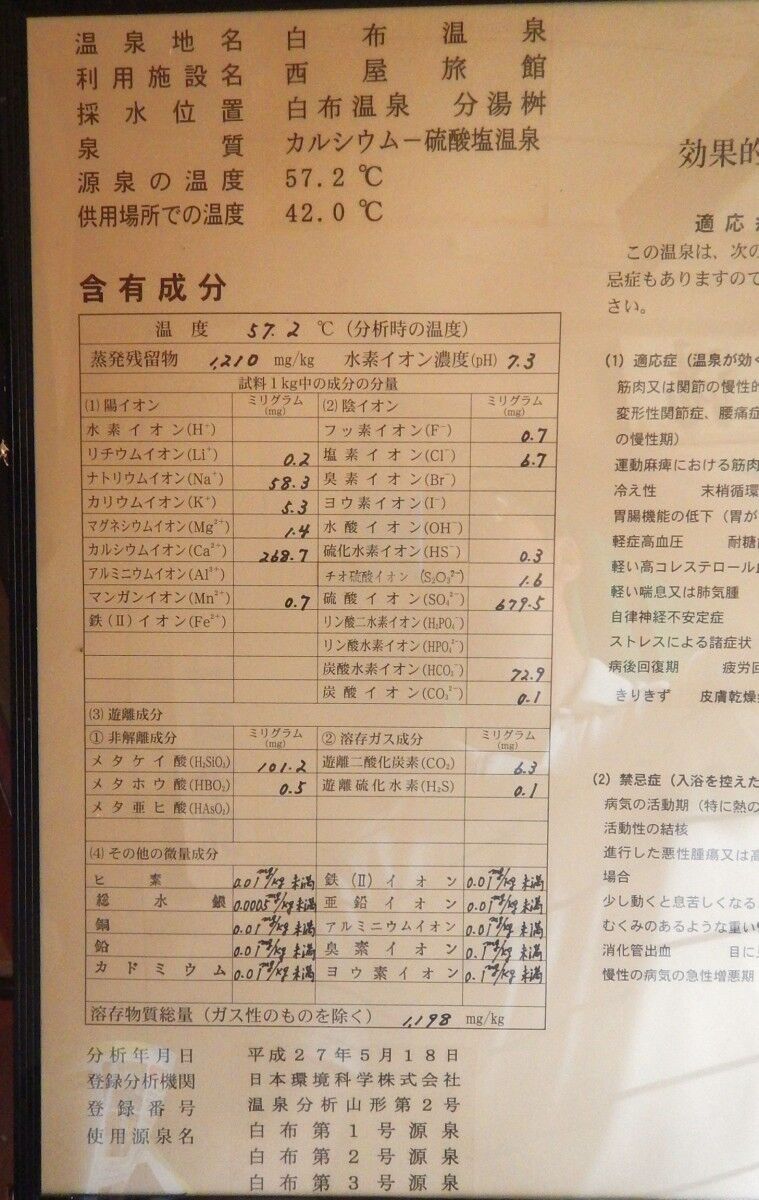 温泉地名 白布温泉
利用施設名 西屋旅館
採水位置 白布温泉 分湯桝
泉質 カルシウム－硫酸塩温泉
源泉の温度 57.2 ℃
供用場所での温度 42.0 ℃
含有成分
温度 57.2 ℃(分析時の温度)
蒸発残留物 1,210 mg/kg 水素イオン濃度(pH) 7.3
試料1kg中の成分の分量
(1) 陽イオン ミリグラム(mg) (2) 陰イオン ミリグラム(mg)
水素イオン(H⁺) フッ素イオン(F⁻) 0.7
リチウムイオン(Li⁺) 0.2 塩素イオン(Cl⁻) 6.7
ナトリウムイオン(Na⁺) 58.3 臭素イオン(Br⁻)
カリウムイオン(K⁺) 5.3 ヨウ素イオン(I⁻)
マグネシウムイオン(Mg²⁺) 1.4 水酸イオン(OH⁻)
カルシウムイオン(Ca²⁺) 268.7 硫化水素イオン(HS⁻) 0.3
アルミニウムイオン(Al³⁺) チオ硫酸イオン (S₂O₃²⁻) 1.6
マンガンイオン(Mn²⁺) 0.7 硫酸イオン(SO₄²⁻) 679.5
鉄(II)イオン(Fe²⁺) リン酸二水素イオン(H₂PO₄⁻)
リン酸水素イオン(HPO₄²⁻)
炭酸水素イオン(HCO₃⁻) 72.9
炭酸イオン(CO₃²⁻) 0.1
(3) 遊離成分
① 非解離成分 ミリグラム(mg) ② 溶存ガス成分 ミリグラム(mg)
メタケイ酸(H₂SiO₃) 101.2 遊離二酸化炭素(CO₂) 6.3
メタホウ酸(HBO₂) 0.5 遊離硫化水素(H₂S) 0.1
メタ亜ヒ酸(HAsO₂)
(4) その他の微量成分
ヒ素 0.01mg/kg未満 鉄(II)イオン 0.01mg/kg未満
総水銀 0.0005mg/kg未満 亜鉛イオン 0.01mg/kg未満
銅 0.01mg/kg未満 アルミニウムイオン 0.01mg/kg未満
鉛 0.01mg/kg未満 臭素イオン 0.1mg/kg未満
カドミウム 0.01mg/kg未満 ヨウ素イオン 0.1mg/kg未満
溶存物質総量(ガス性のものを除く) 1,198 mg/kg
分析年月日 平成27年5月18日
登録分析機関 日本環境科学株式会社
登録番号 温泉分析山形第2号
使用源泉名 白布第1号源泉
白布第2号源泉
白布第3号源泉
効果的
適応
この温泉は、次の
忌症もありますので
さい。
(1) 適応症(温泉が効く
筋肉又は関節の慢性的
変形性関節症、腰痛症
の慢性期)
運動麻痺における筋肉
冷え性 末梢循環
胃腸機能の低下(胃が
軽症高血圧 耐糖
軽い高コレステロール
軽い喘息又は肺気腫
自律神経不安定症
ストレスによる諸症状
病後回復期 疲労回
きりきず 皮膚乾燥
(2) 禁忌症(入浴を控えた
病気の活動期(特に熱の
活動性の結核
進行した悪性腫瘍又は高
場合
少し動くと息苦しくなる
むくみのあるような重い
消化管出血 目に
慢性の病気の急性増悪期